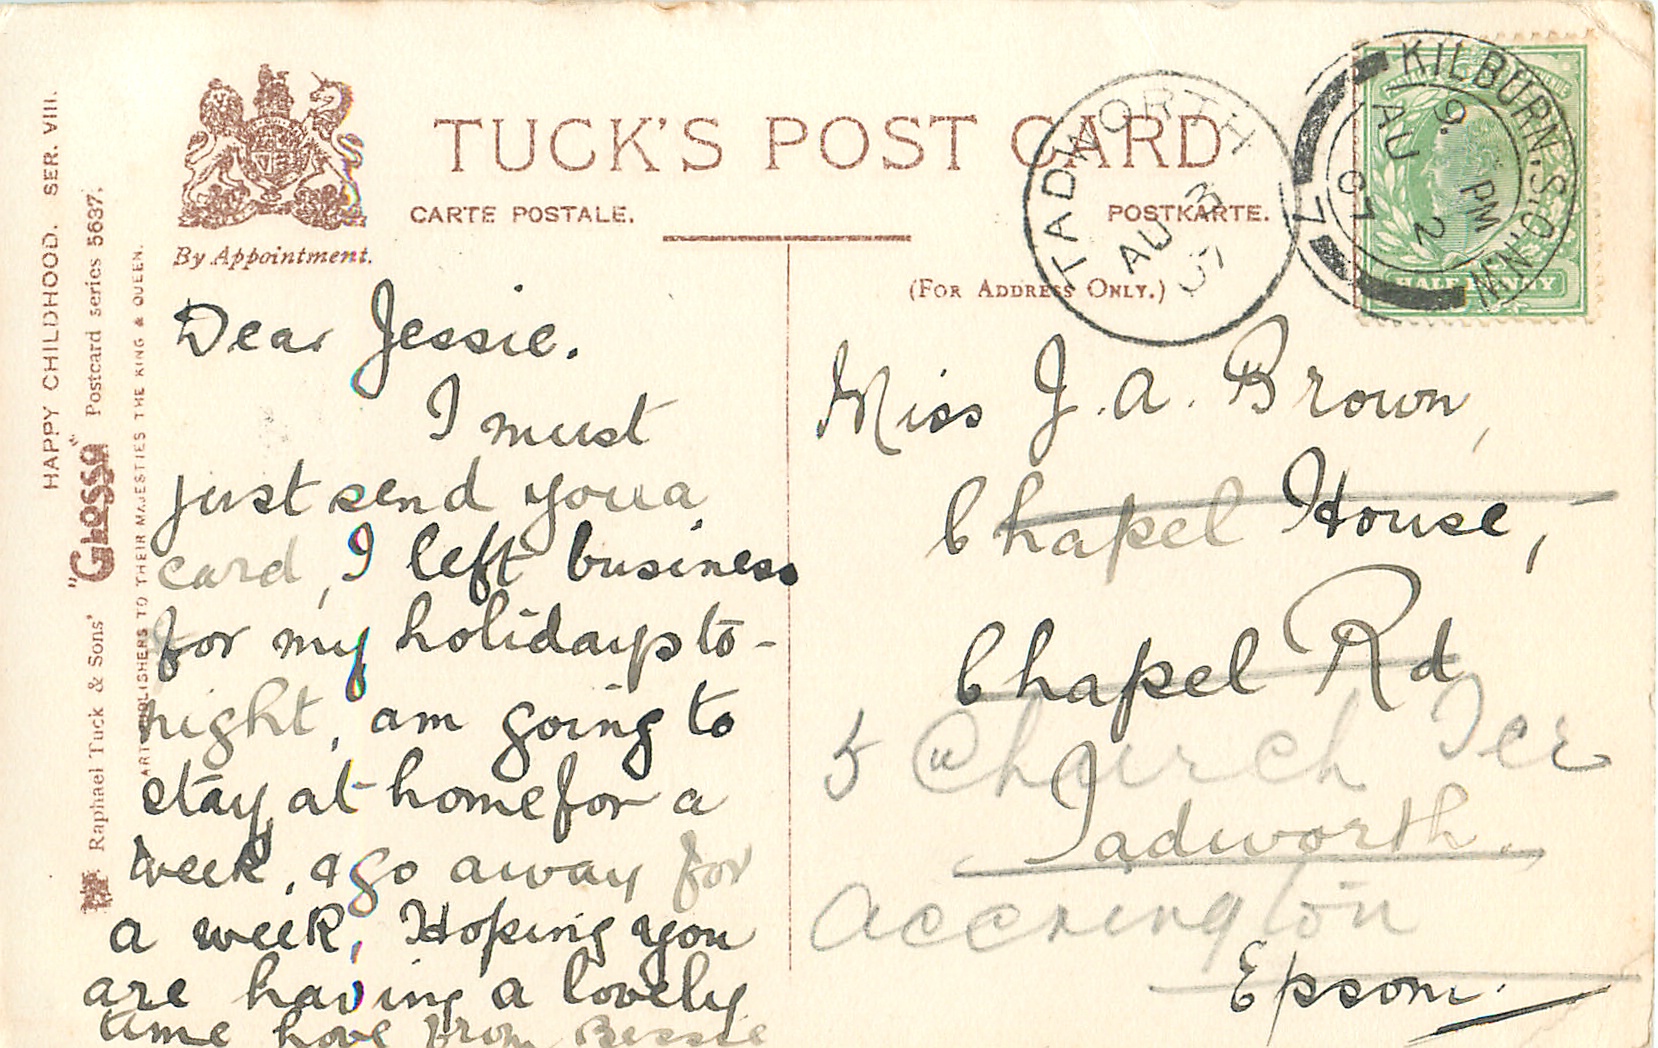 TUCK'S POST CARD
CARTE POSTALE.
POSTKARTE.
By Appointment.
(FOR ADDRESS ONLY.)
HAPPY CHILDHOOD. SER. VIII.
Raphael Tuck & Sons' "Glosso" Postcard series 5637.
ART PUBLISHERS TO THEIR MAJESTIES THE KING & QUEEN.
TADWORTH
AU 3
07
KILBURN.S.O.N.W
9. PM
AU 2
07
7
HALFPENNY
Dear Jessie.
I must
just send you a
card, I left business
for my holidays to-
night, am going to
stay at home for a
week, & go away for
a week, Hoping you
are having a lovely
time love from Bessie
Miss J. A. Brown,
Chapel House,
Chapel Rd
5 Church Ter
Tadworth.
Accrington
Epsom.